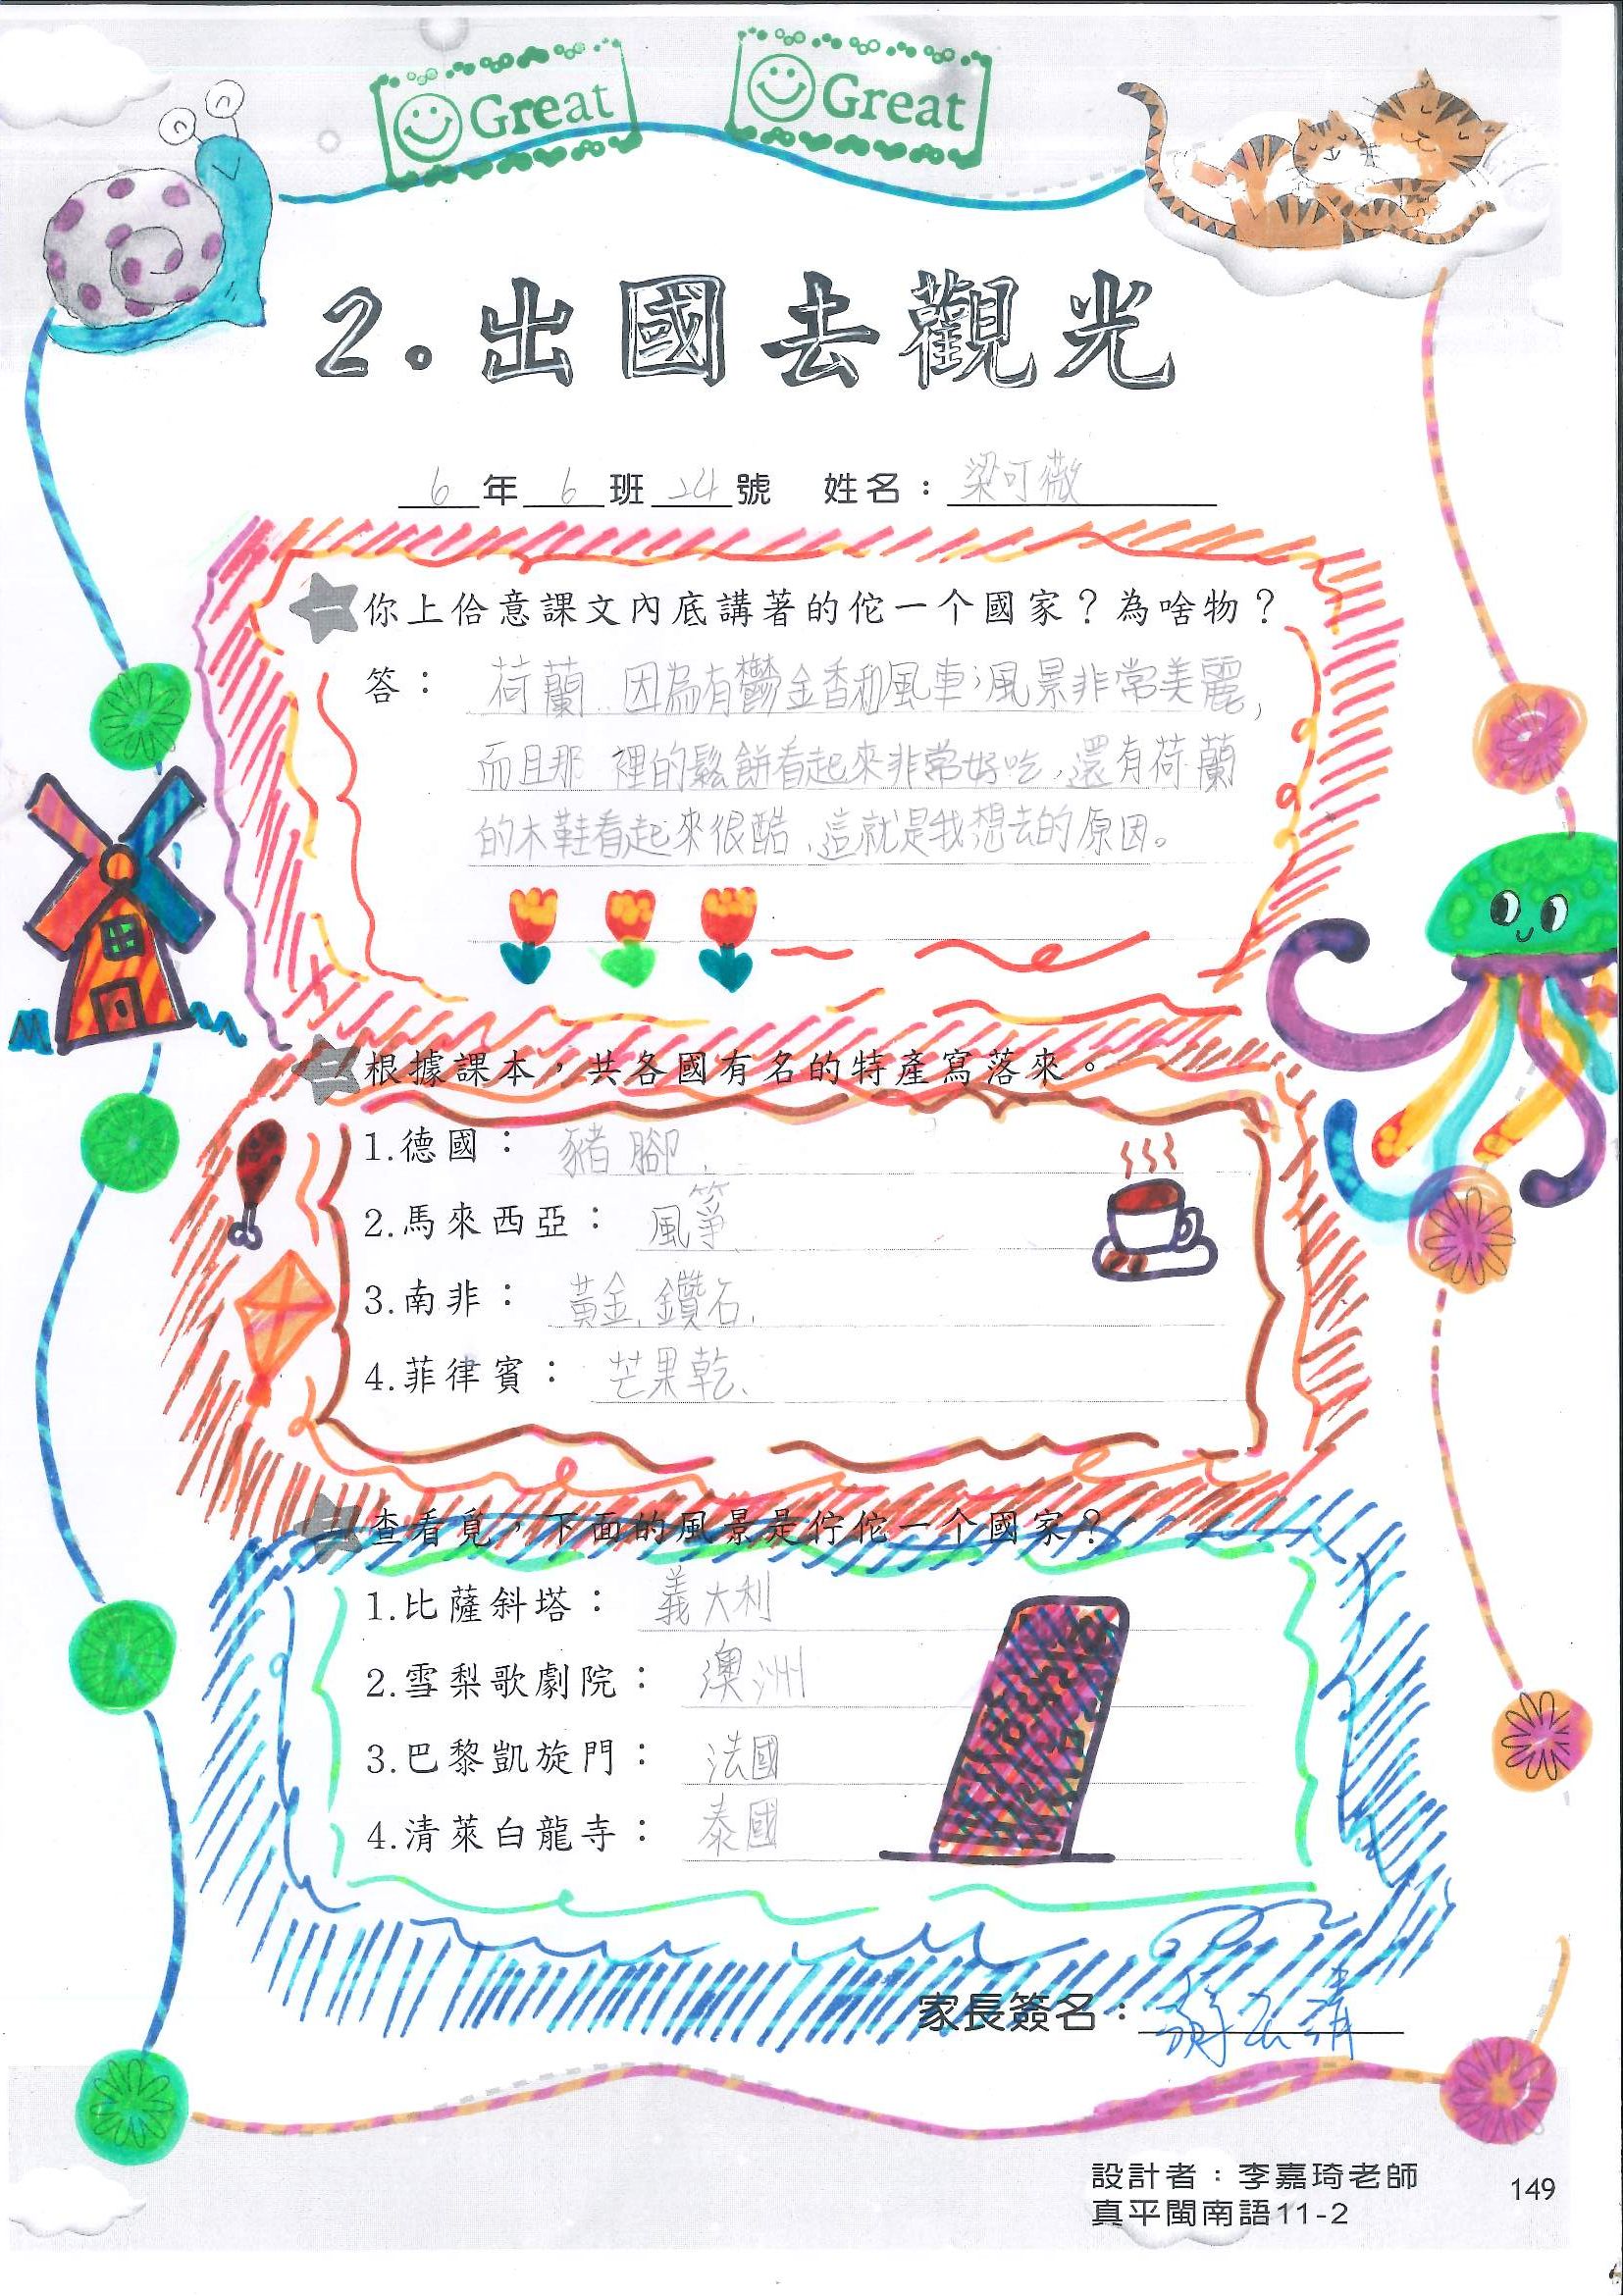 Great
Great
2.出國去觀光
6年6班24號 姓名：梁可薇
一 你上佮意課文內底講著的佗一个國家？為啥物？
答：荷蘭.因為有鬱金香和風車,風景非常美麗,
而且那裡的鬆餅看起來非常好吃,還有荷蘭
的木鞋看起來很酷,這就是我想去的原因。
二 根據課本，共各國有名的特產寫落來。
1.德國：豬腳.
2.馬來西亞：風箏
3.南非：黃金.鑽石.
4.菲律賓：芒果乾.
三 查看覓，下面的風景是佇佗一个國家？
1.比薩斜塔：義大利
2.雪梨歌劇院：澳洲
3.巴黎凱旋門：法國
4.清萊白龍寺：泰國
家長簽名：
設計者：李嘉琦老師
真平閩南語11-2
149